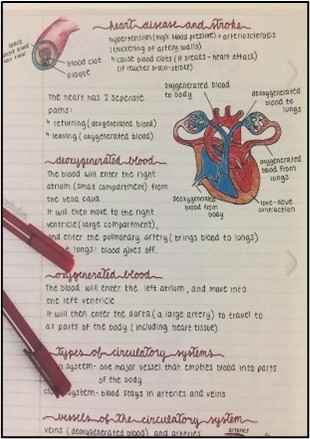 heart disease and stroke
hypertension (high blood pressure) + arteriosclerosis
(thickening of artery walls)
↳ cause blood clots (if breaks - heart attack)
(if reaches brain - stroke)
space where blood can flow
blood clot
plaque
The heart has 2 seperate
paths:
↳ returning (deoxygenated blood)
↳ leaving (oxygenated blood)
oxygenated blood
to body
deoxygenated
blood to
lungs
oxygenated
blood from
lungs
deoxygenated
blood from
body
contraction
deoxygenated blood
The blood will enter the right
atrium (small compartment) from
the vena cava
It will then move to the right
ventricle (large compartment),
and enter the pulmonary artery (brings blood to lungs)
lungs: blood gives off.
oxygenated blood
The blood will enter the left atrium, and move into
the left ventricle
It will then enter the aorta (a large artery) to travel to
all parts of the body (including heart tissue)
types of circulatory systems
system - one major vessel that empties blood into parts
of the body
system - blood stays in arteries and veins
vessels of the circulatory system
veins (deoxygenated blood) and arteries
arteries